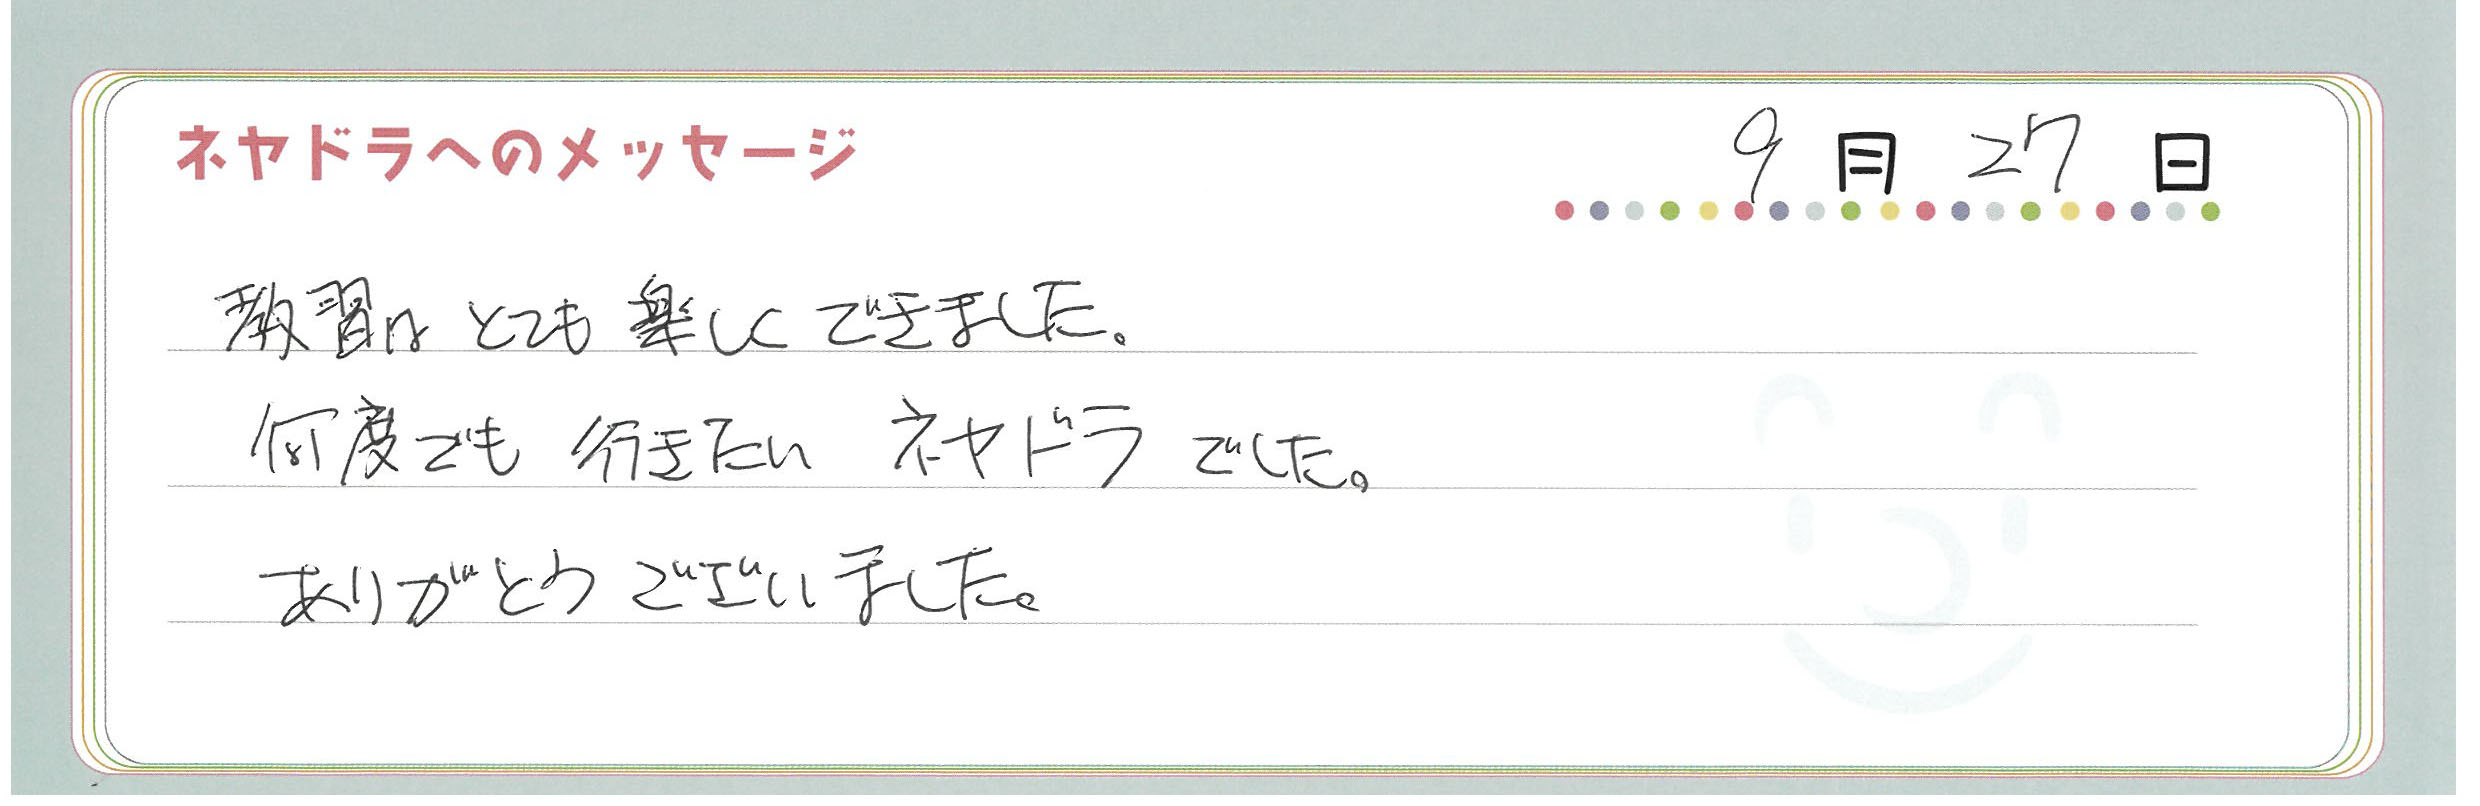 ネヤドラへのメッセージ
9月27日
教習はとても楽しくできました。
何度でも行きたいネヤドラでした。
ありがとうございました。